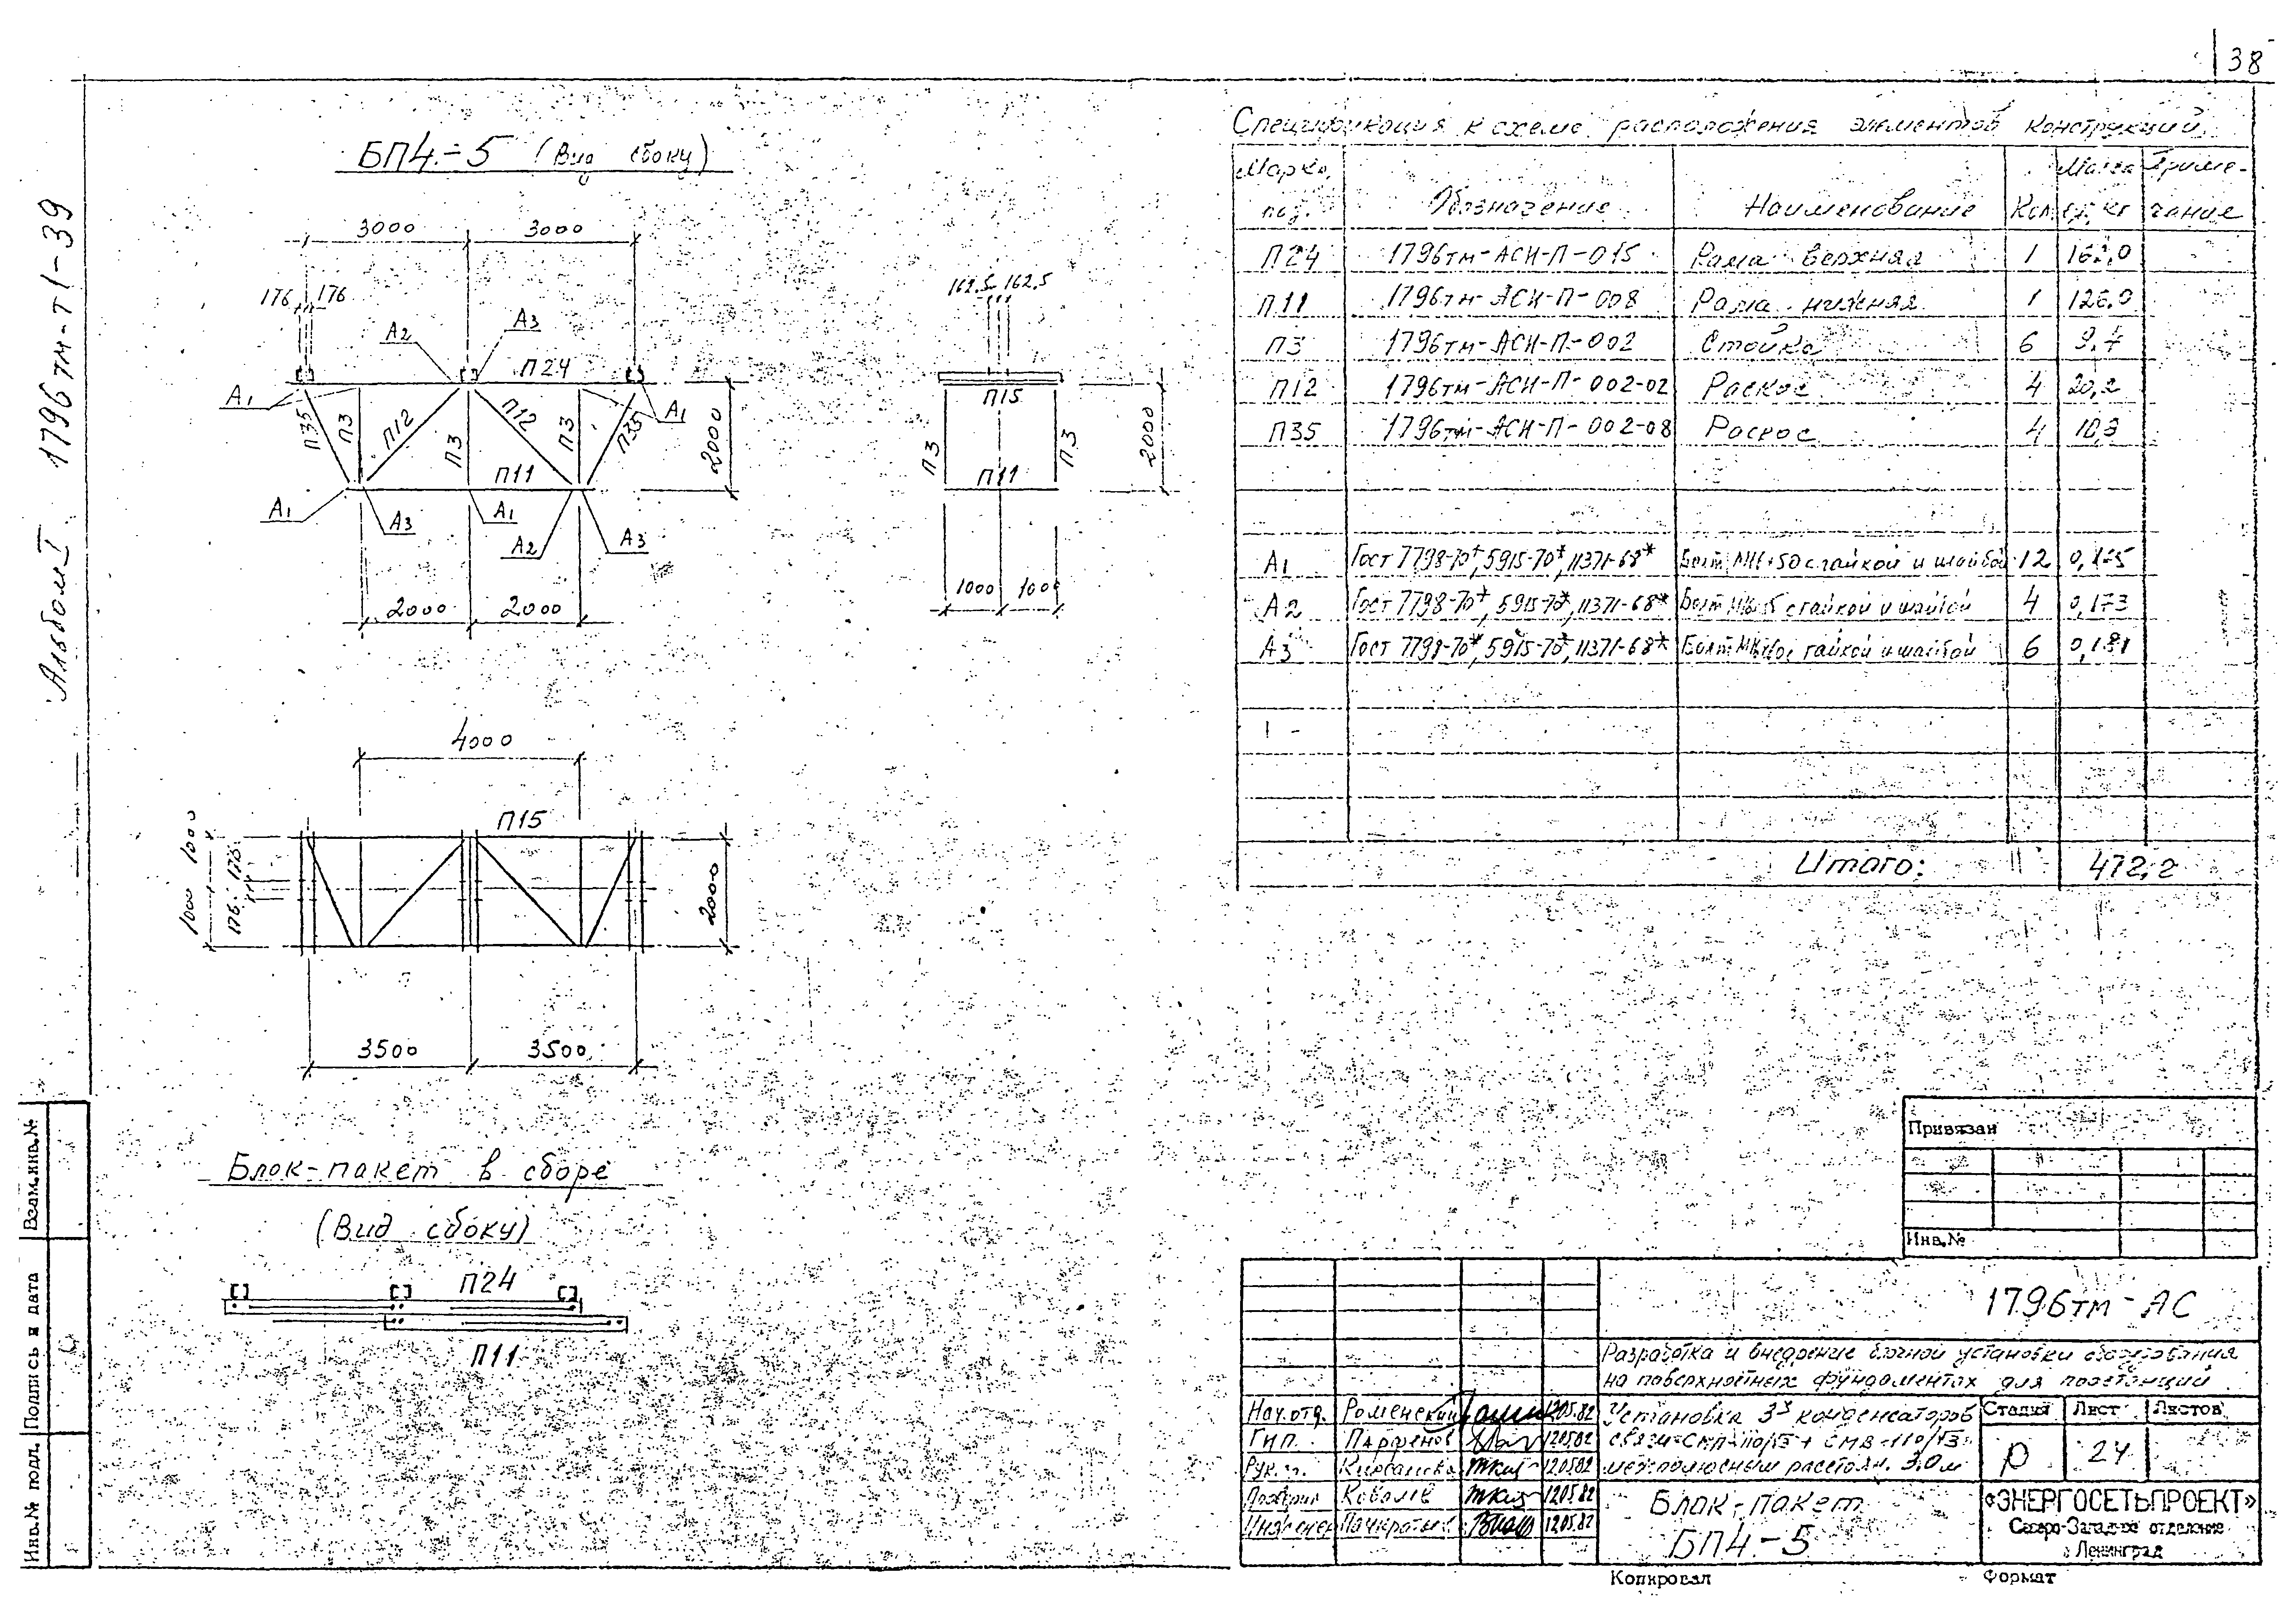 38
Альбом I 1796 тм-т1-39
БП4-5 (Вид сбоку)
3000 3000
176 176
А2 А3
П24
А1 А1
П35 П3 П12 П3 П12 П3 П35
2000
П11
А1 А3 А1 А2 А3
2000 2000
162.5 162.5
П15
П3 П3
2000
П11
1000 1000
4000
П15
1000 1000
2000
3500 3500
Блок-пакет в сборе
(Вид сбоку)
П24
П11
Спецификация к схеме расположения элементов конструкций
Марка, поз. Обозначение Наименование Кол. Масса ед. кг Приме-чание
П24 1796тм-АСИ-П-015 Рама верхняя 1 162,0
П11 1796тм-АСИ-П-008 Рама нижняя 1 126,0
П3 1796тм-АСИ-П-002 Стойка 6 9,4
П12 1796тм-АСИ-П-002-02 Раскос 4 20,2
П35 1796тм-АСИ-П-002-08 Раскос 4
А1 Гост 7798-70*, 5915-70*, 11371-68* Болт с гайкой и шайбой 12
А2 Гост 7798-70*, 5915-70*, 11371-68* Болт с гайкой и шайбой 4 0,173
А3 Гост 7798-70*, 5915-70*, 11371-68* Болт с гайкой и шайбой 6 0,181
Итого: 472,2
Привязан
Инв.№
1796тм-АС
Разработка и внедрение блочной установки оборудования
на поверхностных фундаментах для подстанций
Нач.отд. Роменский 12.05.82
ГИП Парфенов 12.05.82
Рук. гр. 12.05.82
12.05.82
Инженер 12.05.82
Установка 3х конденсаторов
связи СМП-110/√3 + СМВ-110/√3
межполюсным расстоян. 3,0м
Стадия Лист Листов
Р 24
Блок-пакет
БП4-5
«ЭНЕРГОСЕТЬПРОЕКТ»
Северо-Западное отделение
Ленинград
Копировал Формат
Взам.инв.№
Подпись и дата
Инв.№ подл.